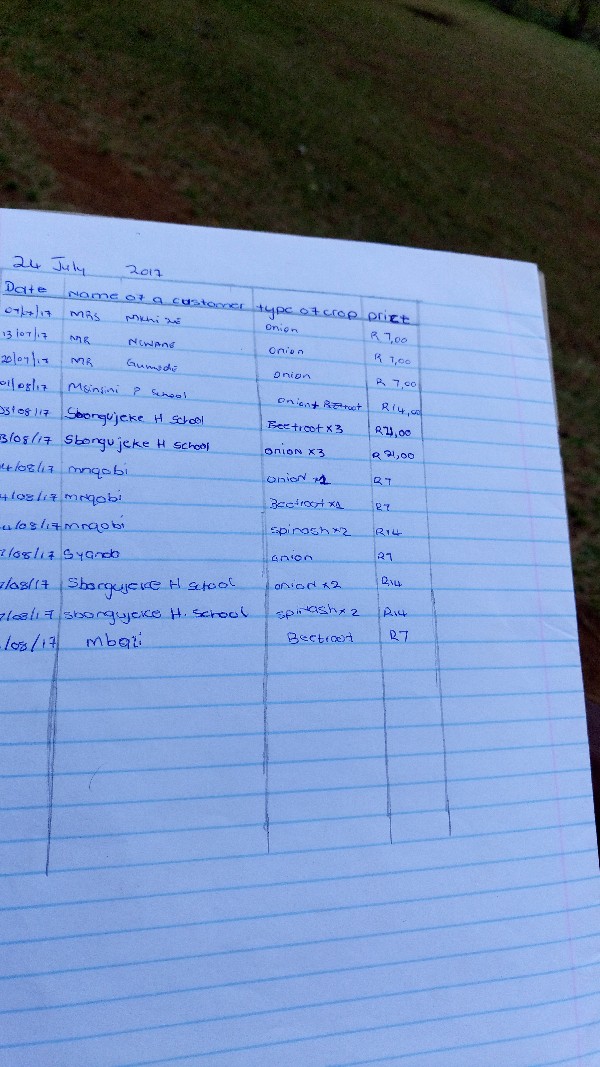 24 July 2017
Date Name of a customer type of crop price
07/7/17 MRS Mkhize onion R 7,00
13/07/17 MR onion R 7,00
20/07/17 MR Gumede onion R 7,00
01/08/17 Msinsini P School onion+ Beetroot R14,00
03/08/17 Sbongujeke H School Beetroot x3 R21,00
3/08/17 Sbongujeke H School onion x3 R21,00
4/08/17 mnqobi onion x1 R7
4/08/17 mnqobi Beetroot x1 R7
4/08/17 mnqobi spinash x2 R14
/08/17 Syanda onion R7
/08/17 Sbongujeke H School onion x2 R14
7/08/17 sbongujeke H. School spinash x2 R14
/08/17 mbali Beetroot R7